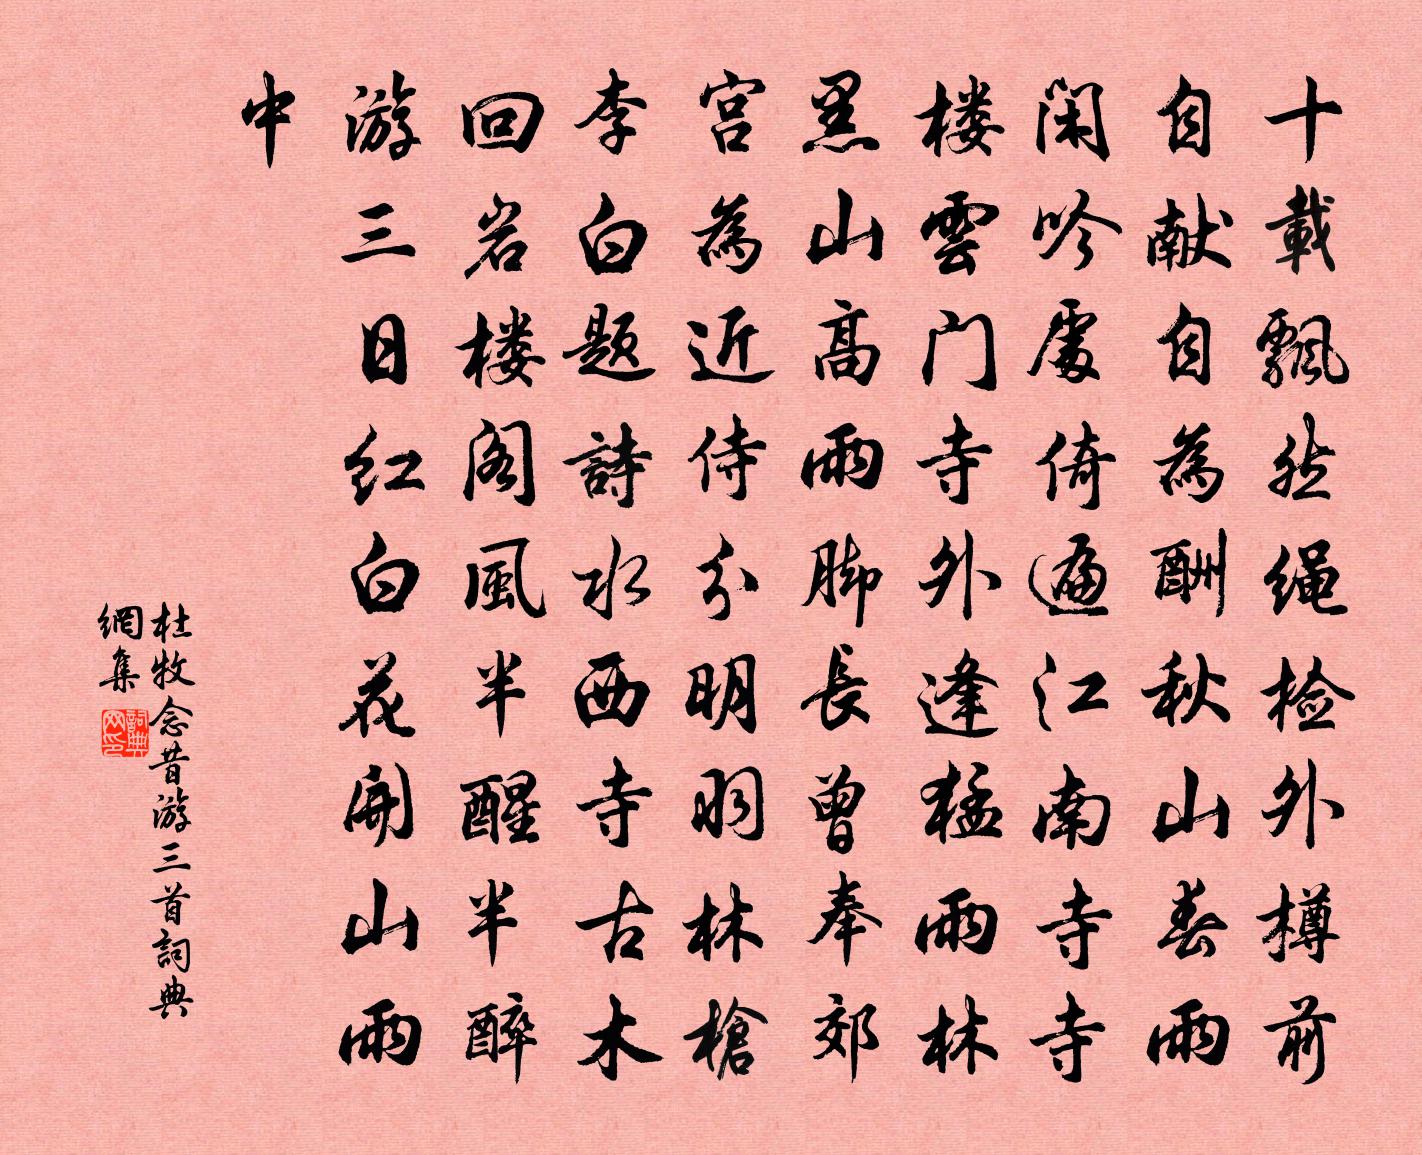 十載飄然绳检外樽前
自献自為酬秋山春雨
闲吟處倚遍江南寺寺
楼雲门寺外逢猛雨林
黑山高雨脚長曾奉郊
宫為近侍分明㧐㧐林槍
李白题詩水西寺古木
回岩楼阁風半醒半醉
游三日红白花開山雨
中
杜牧念昔游三首詞典
網集